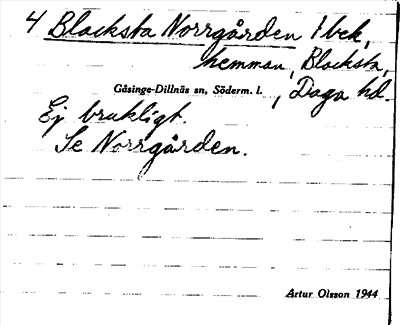 4 Blacksta Norrgården 1 bek,
hemman, Blacksta,
Gåsinge-Dillnäs sn, Söderm. l. , Daga hd.
Ej brukligt.
Se Norrgården.
Artur Olsson 1944